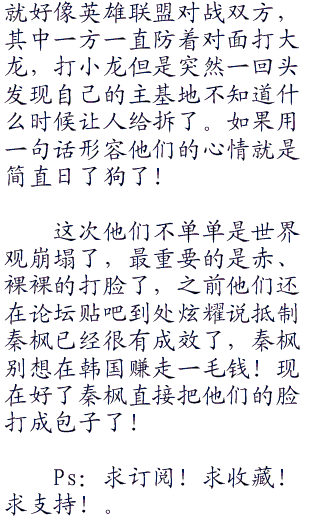 就好像英雄联盟对战双方，
其中一方一直防着对面打大
龙，打小龙但是突然一回头
发现自己的主基地不知道什
么时候让人给拆了。如果用
一句话形容他们的心情就是
简直日了狗了！
这次他们不单单是世界
观崩塌了，最重要的是赤、
裸裸的打脸了，之前他们还
在论坛贴吧到处炫耀说抵制
秦枫已经很有成效了，秦枫
别想在韩国赚走一毛钱！现
在好了秦枫直接把他们的脸
打成包子了！
Ps：求订阅！求收藏！
求支持！。